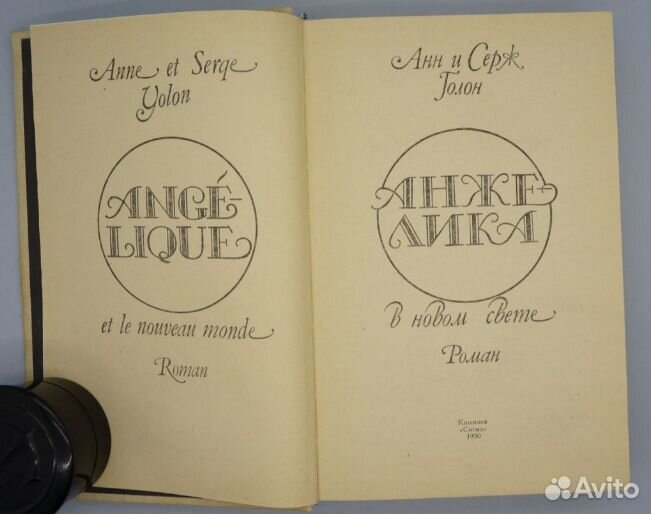 Anne et Serge
Golon
ANGÉ-
LIQUE
et le nouveau monde
Roman
Анн и Серж
Голон
АНЖЕ-
ЛИКА
в новом свете
Роман
Кишинев
«Сигма»
1990
Avito